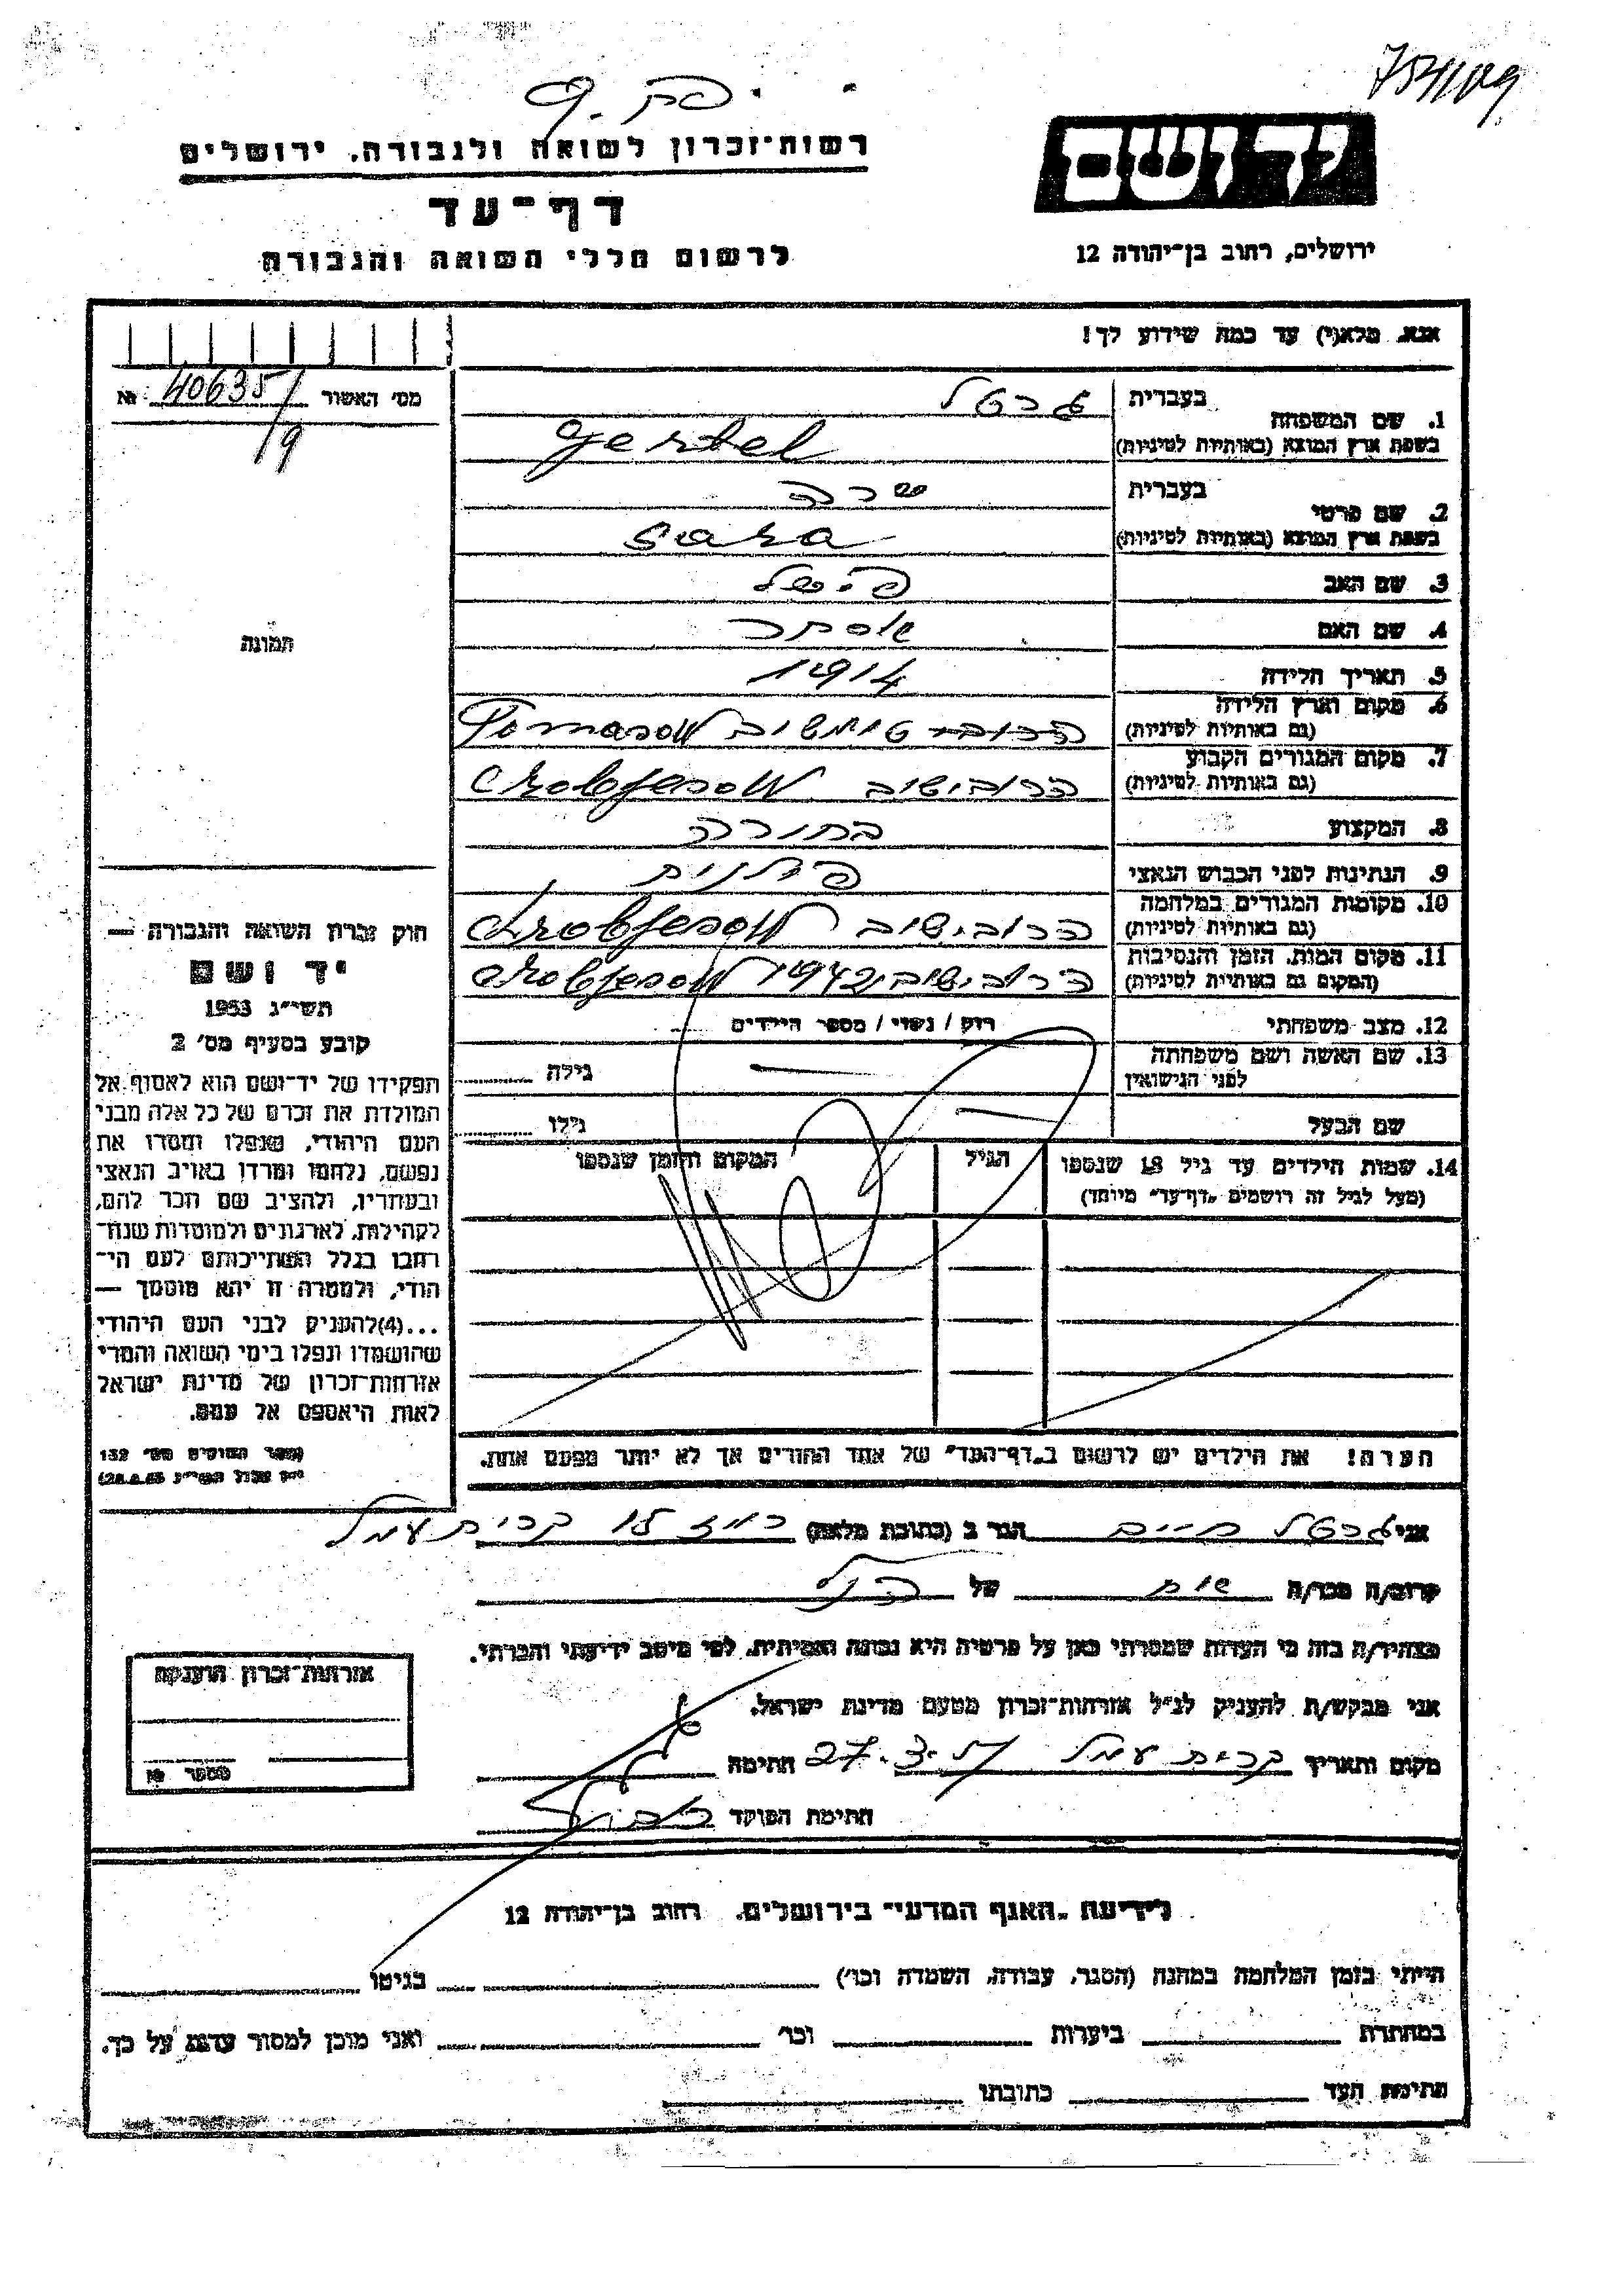 רשות־זכרון לשואה ולגבורה, ירושלים
דף־עד
לרשום חללי השואה והגבורה
יד ושם
ירושלים, רחוב בן־יהודה 12
אנא, מלא(י) עד כמה שידוע לך!
מס׳ האשור № 406351
/9
תמונה
1. שם המשפחה בעברית גרטל
בשפת ארץ המוצא (באותיות לטיניות) gertel
2. שם פרטי בעברית שרה
בשפת ארץ המוצא (באותיות לטיניות) sara
3. שם האב פישל
4. שם האם אסתר
5. תאריך הלידה 1914
6. מקום וארץ הלידה
(גם באותיות לטיניות) Tomasow
7. מקום המגורים הקבוע
(גם באותיות לטיניות) הרובישוב Chrobjesow
8. המקצוע בחורה
9. הנתינות לפני הכבוש הנאצי פולנית
10. מקומות המגורים במלחמה
(גם באותיות לטיניות) הרובישוב Chrobjesow
11. מקום המות, הזמן והנסיבות
(המקום גם באותיות לטיניות) הרובישוב 1942 Chrobjesow
12. מצב משפחתי רווק / נשוי / מספר הילדים
13. שם האשה ושם משפחתה
לפני הנישואין גילה
שם הבעל גילו
14. שמות הילדים עד גיל 18 שנספו הגיל המקום והזמן שנספו
(מעל לגיל זה רושמים „דף־עד״ מיוחד)
הערה! את הילדים יש לרשום ב„דף־העד״ של אחד ההורים אך לא יותר מפעם אחת.
חוק זכרון השואה והגבורה —
יד ושם
תשי״ג 1953
קובע בסעיף מס׳ 2
תפקידו של יד־ושם הוא לאסוף אל
המולדת את זכרם של כל אלה מבני
העם היהודי, שנפלו ומסרו את
נפשם, נלחמו ומרדו באויב הנאצי
ובעוזריו, ולהציב שם וזכר להם,
לקהילות, לארגונים ולמוסדות שנח־
רבו בגלל השתייכותם לעם הי־
הודי, ולמטרה זו יהא מוסמך —
...(4)להעניק לבני העם היהודי
שהושמדו ונפלו בימי השואה והמרי
אזרחות־זכרון של מדינת ישראל
לאות היאספם אל עמם.
(ספר החוקים מס׳ 132
אני גרטל חיים הגר ב (כתובת מלאה) 15 קרית עמל
קרוב/ה מכר/ה אח של הנ״ל
מצהיר/ה בזה כי העדות שמסרתי כאן על פרטיה היא נכונה ואמיתית, לפי מיטב ידיעתי והכרתי.
אני מבקש/ת להעניק לנ״ל אזרחות־זכרון מטעם מדינת ישראל.
מקום ותאריך קרית עמל 27.3.57 חתימה
חתימת הפוקד
אזרחות־זכרון הוענקה
מספר №
לידיעת „האגף המדעי״ בירושלים, רחוב בן־יהודה 12
הייתי בזמן המלחמה במחנה (הסגר, עבודה, השמדה וכו׳) בגיטו
במחתרת ביערות וכו׳ ואני מוכן למסור עדות על כך.
חתימת העד כתובתו